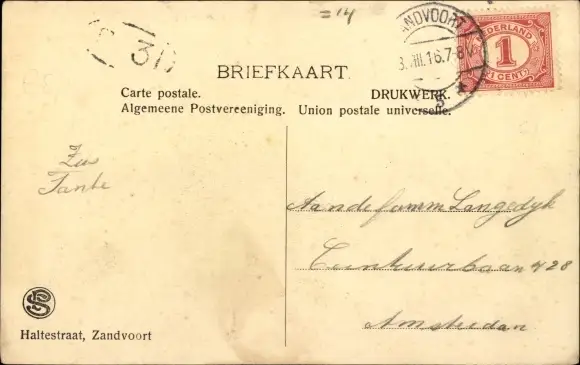 =14
ZANDVOORT
8.VIII.16.7-8V
3
NEDERLAND
1
1 CENT
BRIEFKAART.
Carte postale.
DRUKWERK.
Algemeene Postvereeniging. Union postale universelle.
Tante
Aan de famm Langedyk
Ceintuurbaan 428
Amsterdam
Haltestraat, Zandvoort